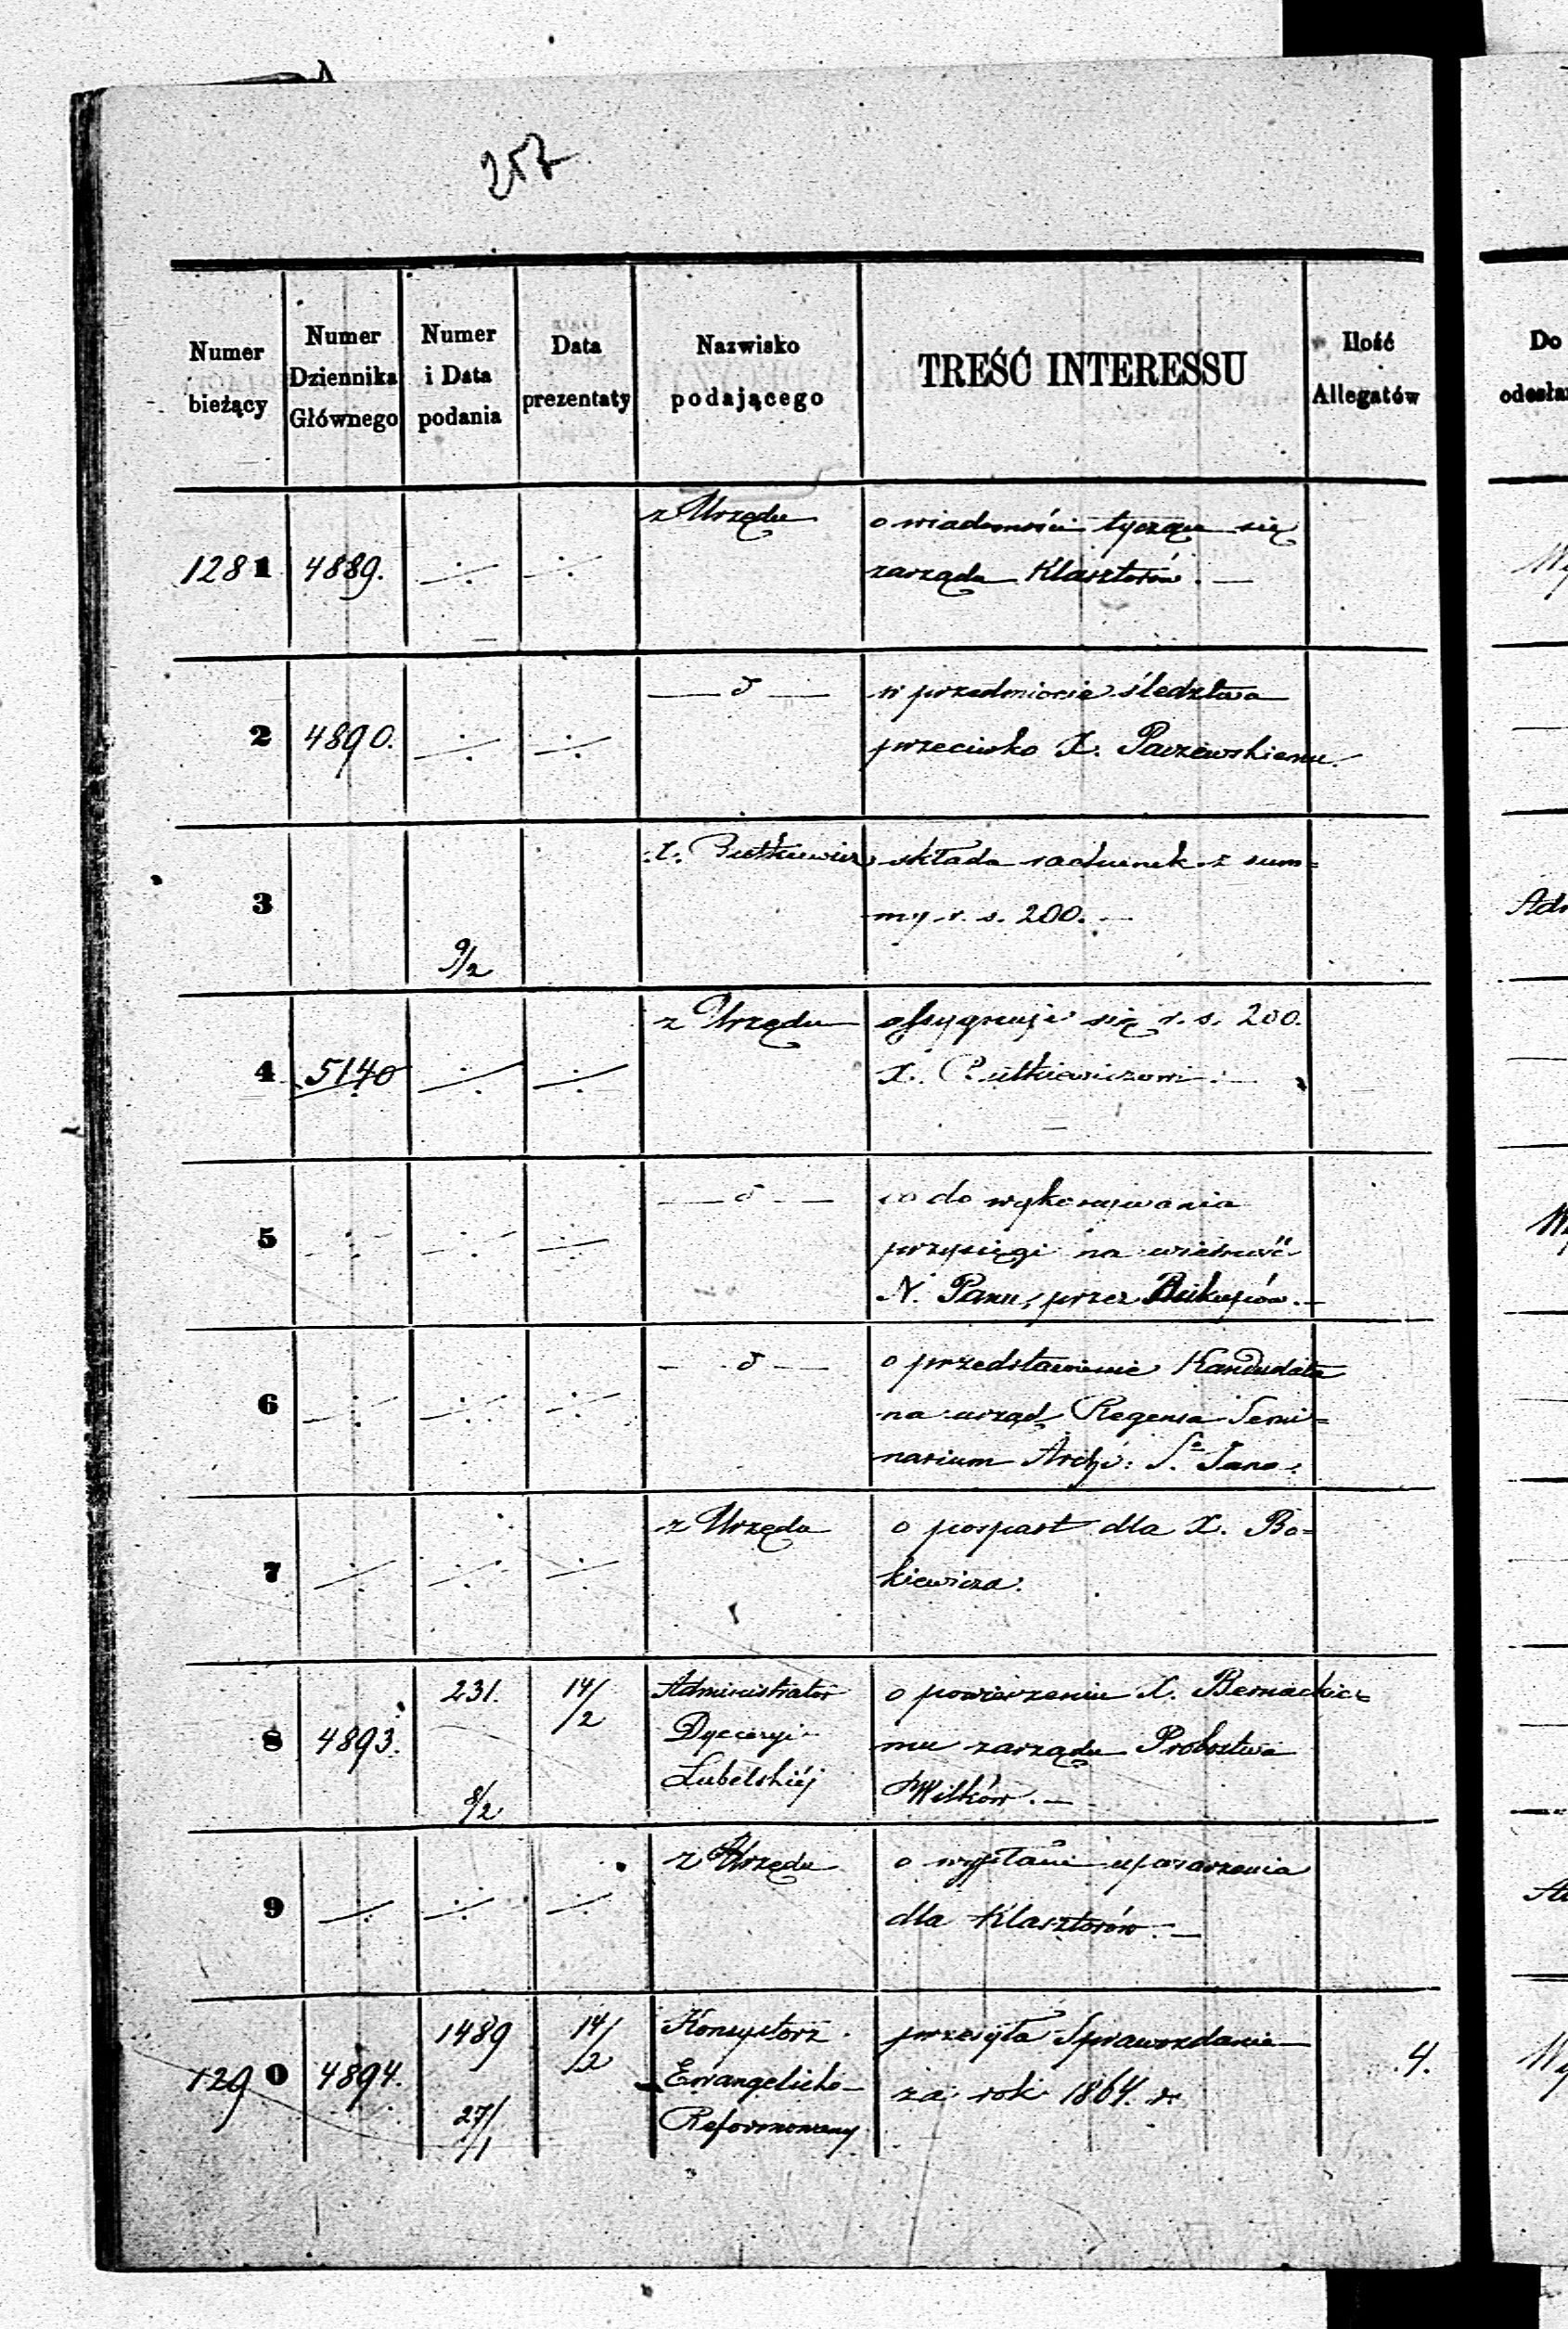 257
Numer bieżący
Numer Dziennika Głównego
Numer i Data podania
Data prezentaty
Nazwisko podającego
TREŚĆ INTERESSU
Ilość Allegatów
Do
1281 4889. ÷ ÷ z Urzędu o wiadomości tyczące się
zarządu Klasztorów. —
2 4890. ÷ ÷ — d — w przedmiocie śledztwa
przeciwko X.
3 9/2 X. składa rachunek z sum=
my r. s. 200. —
4 5140 ÷ ÷ z Urzędu assygnuje się r. s. 200.
X.
5 ÷ ÷ ÷ — d — co do wykonywania
przysięgi na wierność
N. Panu, przez Biskupów. —
6 ÷ ÷ ÷ — d — o przedstawienie Kandydata
na urząd Regensa Semi=
narium Archi: Sº Jana.
7 ÷ ÷ ÷ z Urzędu o paszport dla X. Bo=
kiewicza.
8 4893. 231. 8/2 14/2 Administrator
Dyecezyi
Lubelskiéj
o powierzeniu X. Bernackie=
mu zarządu Probostwa
Wilków. —
9 ÷ ÷ ÷ z Urzędu o
dla Klasztorów. —
1290 4894. 1489 27/1 14/2 Konsystorz
Ewangelicko-
Reformowany
przesyła Sprawozdanie
za rok 1864. r.
4.